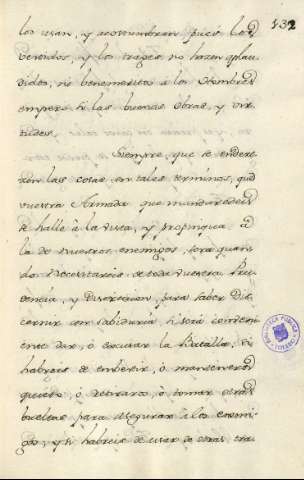 132
los usan, y acostumbran pues los
vestidos, y los trages no hazen aplau
didos, ni benemeritos a los Hombres
empero si las buenas obras, y vir
tudes.
Siempre, que se endere
zen las cosas en tales terminos, que
vuestra Armada que mandaredeis
se halle à la vista, y propinqua à
la de vuestros enemigos, sera quan
do Necesitareis de toda vuestra Pru
dencia, y Discrecion, para saber Dis
cernir con sabiduria si será conveni
ente dar, ò escusar la Batalla; si
habreis de embestir, ò manteneros
quietos, ò retiraros, ò tomar otras
bueltas para asegurar à los enemi
gos, y si habreis de usar de otras tra